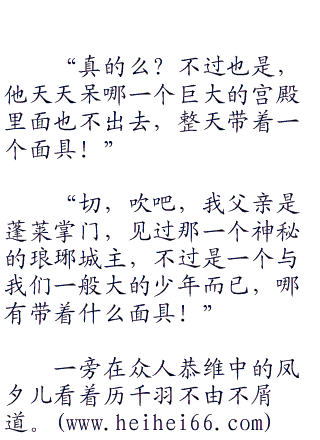 “真的么？不过也是，
他天天呆哪一个巨大的宫殿
里面也不出去，整天带着一
个面具！”
“切，吹吧，我父亲是
蓬莱掌门，见过那一个神秘
的琅琊城主，不过是一个与
我们一般大的少年而已，哪
有带着什么面具！”
一旁在众人恭维中的凤
夕儿看着历千羽不由不屑
道。(www.heihei66.com)